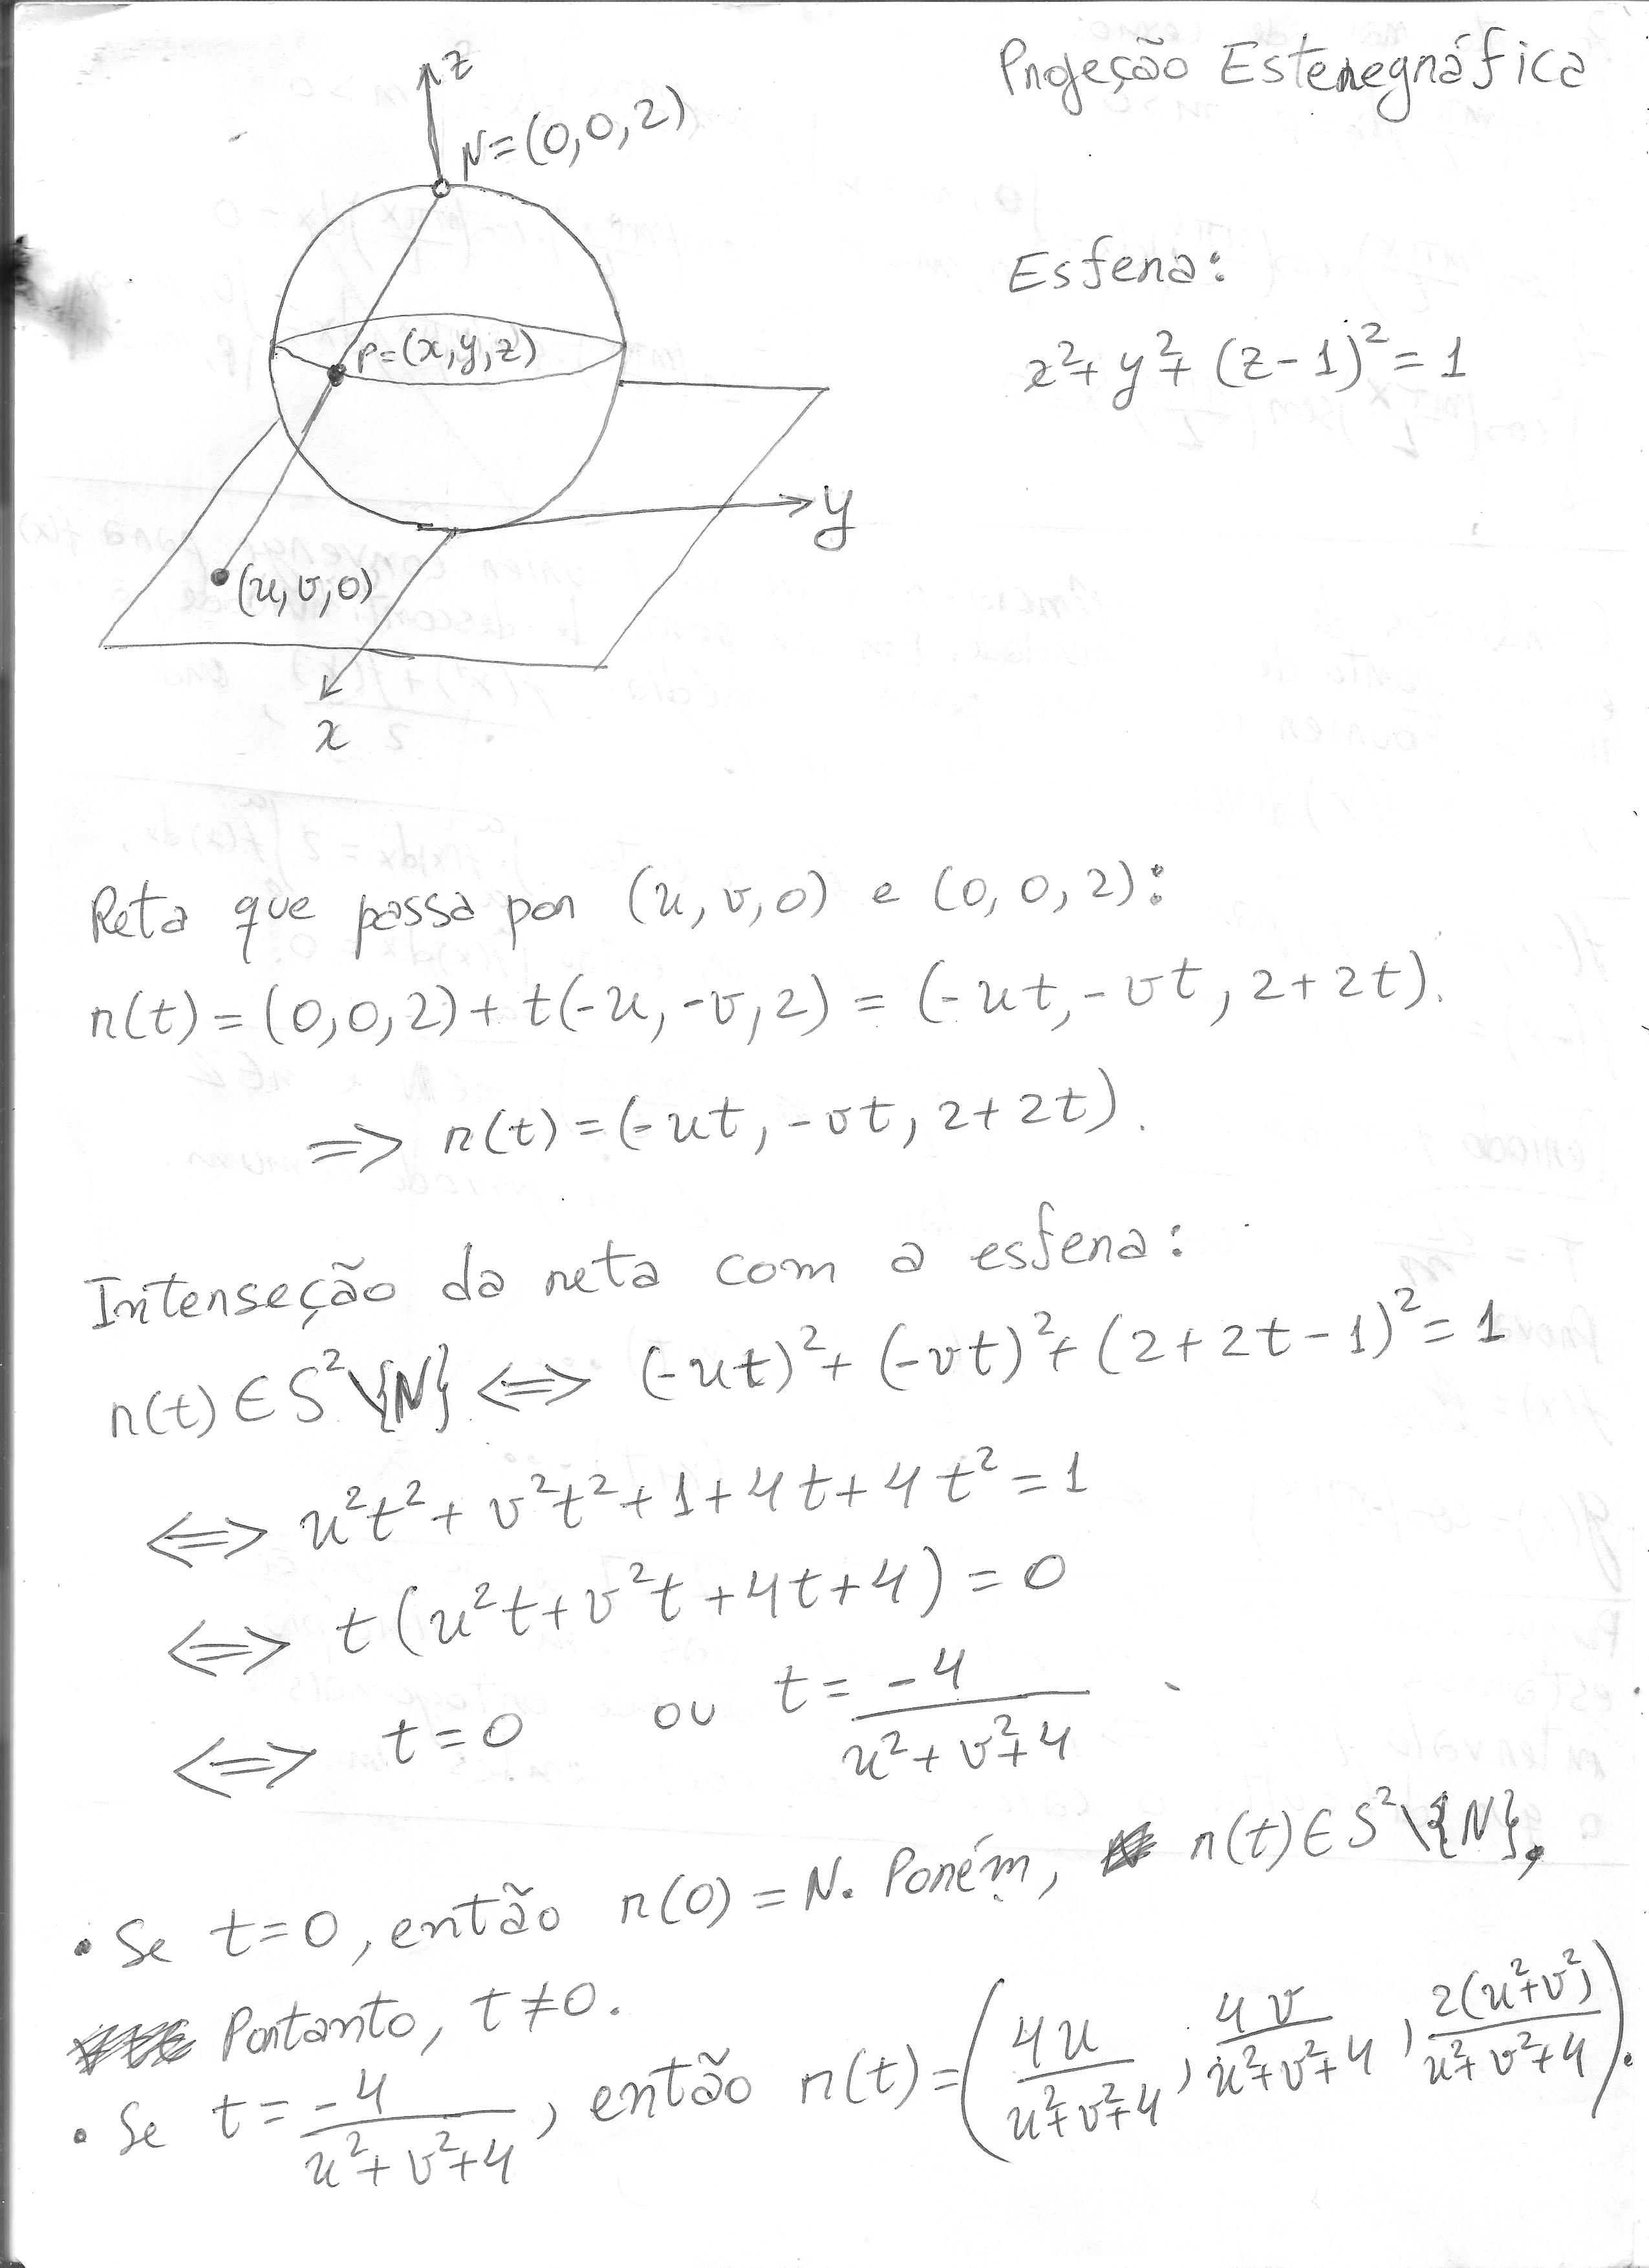 Projeção Estereográfica
z
N=(0,0,2)
Esfera:
x²+y²+(z-1)²=1
P=(x,y,z)
y
(u,v,0)
x
Reta que passa por (u,v,0) e (0,0,2):
r(t)=(0,0,2)+t(-u,-v,2)=(-ut,-vt,2+2t).
=> r(t)=(-ut,-vt,2+2t).
Interseção da reta com a esfera:
r(t)∈S²\{N} <=> (-ut)²+(-vt)²+(2+2t-1)²=1
<=> u²t²+v²t²+1+4t+4t²=1
<=> t(u²t+v²t+4t+4)=0
<=> t=0 ou t=-4/(u²+v²+4).
• Se t=0, então r(0)=N. Porém, r(t)∈S²\{N},
Portanto, t≠0.
• Se t=-4/(u²+v²+4), então r(t)=(4u/(u²+v²+4), 4v/(u²+v²+4), 2(u²+v²)/(u²+v²+4)).